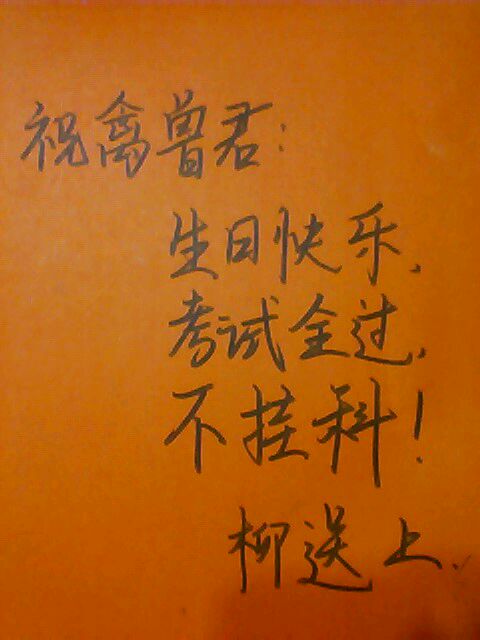 祝禽兽君:
生日快乐.
考试全过.
不挂科!
柳送上.